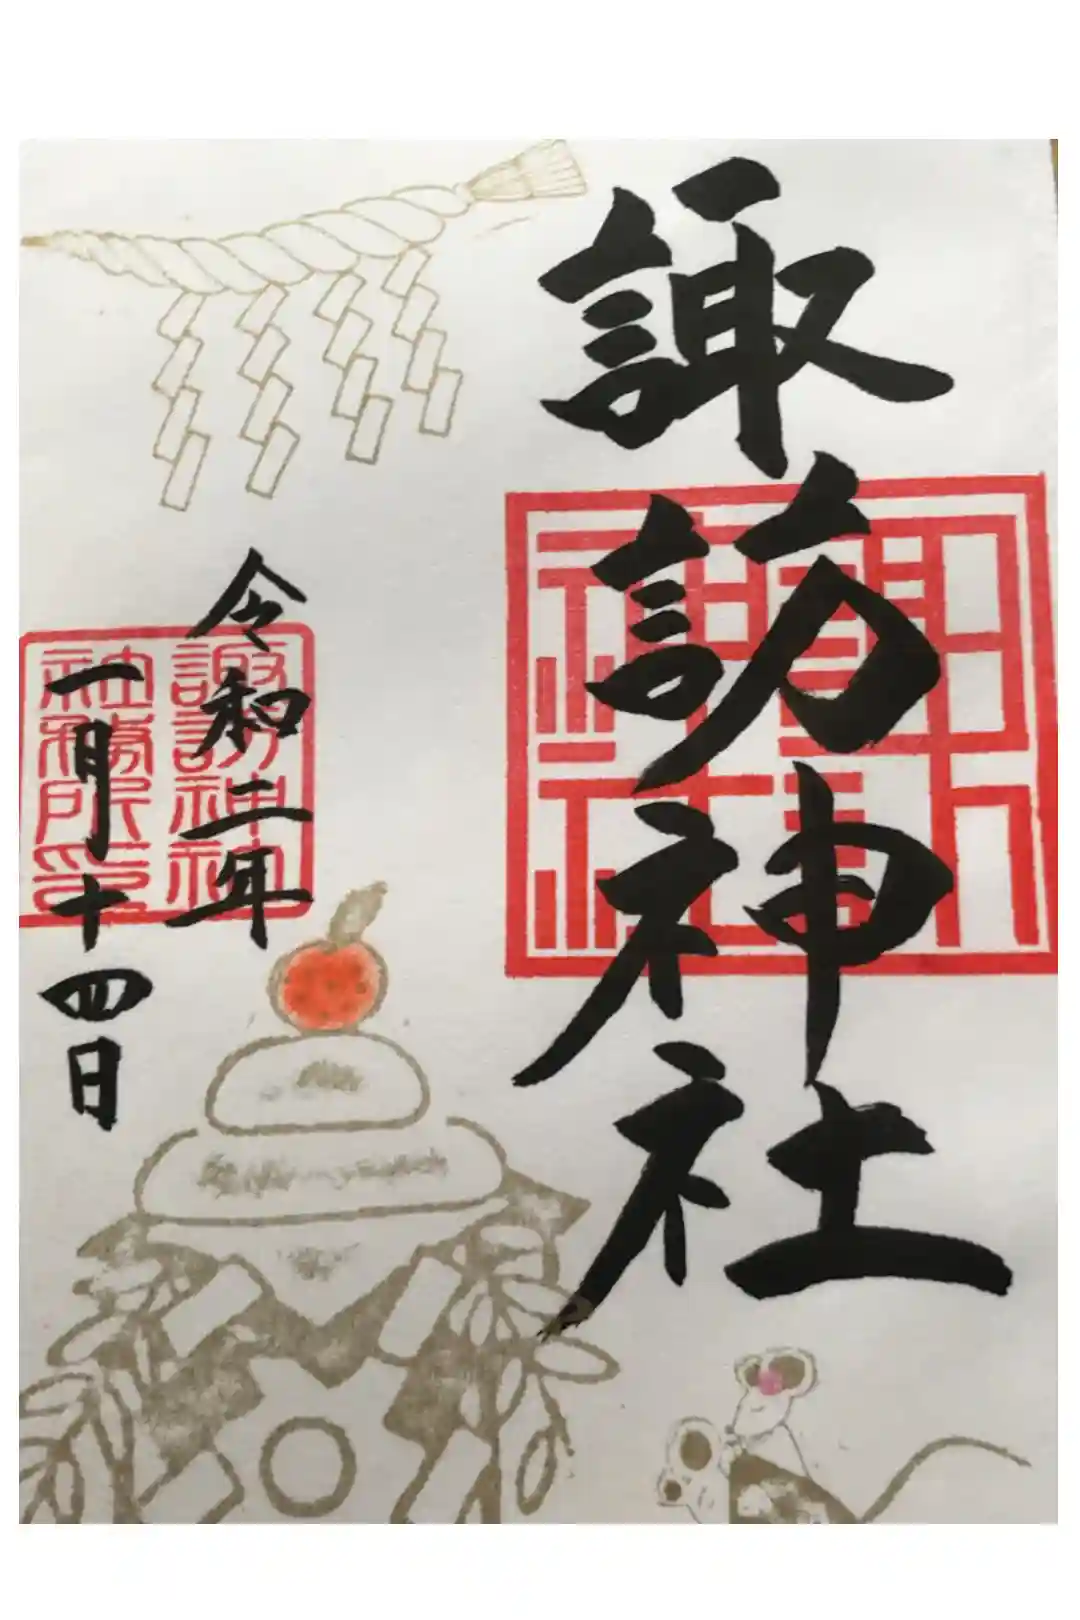 諏訪神社
諏訪神社
令和二年
一月十四日
諏訪神社
社務所印